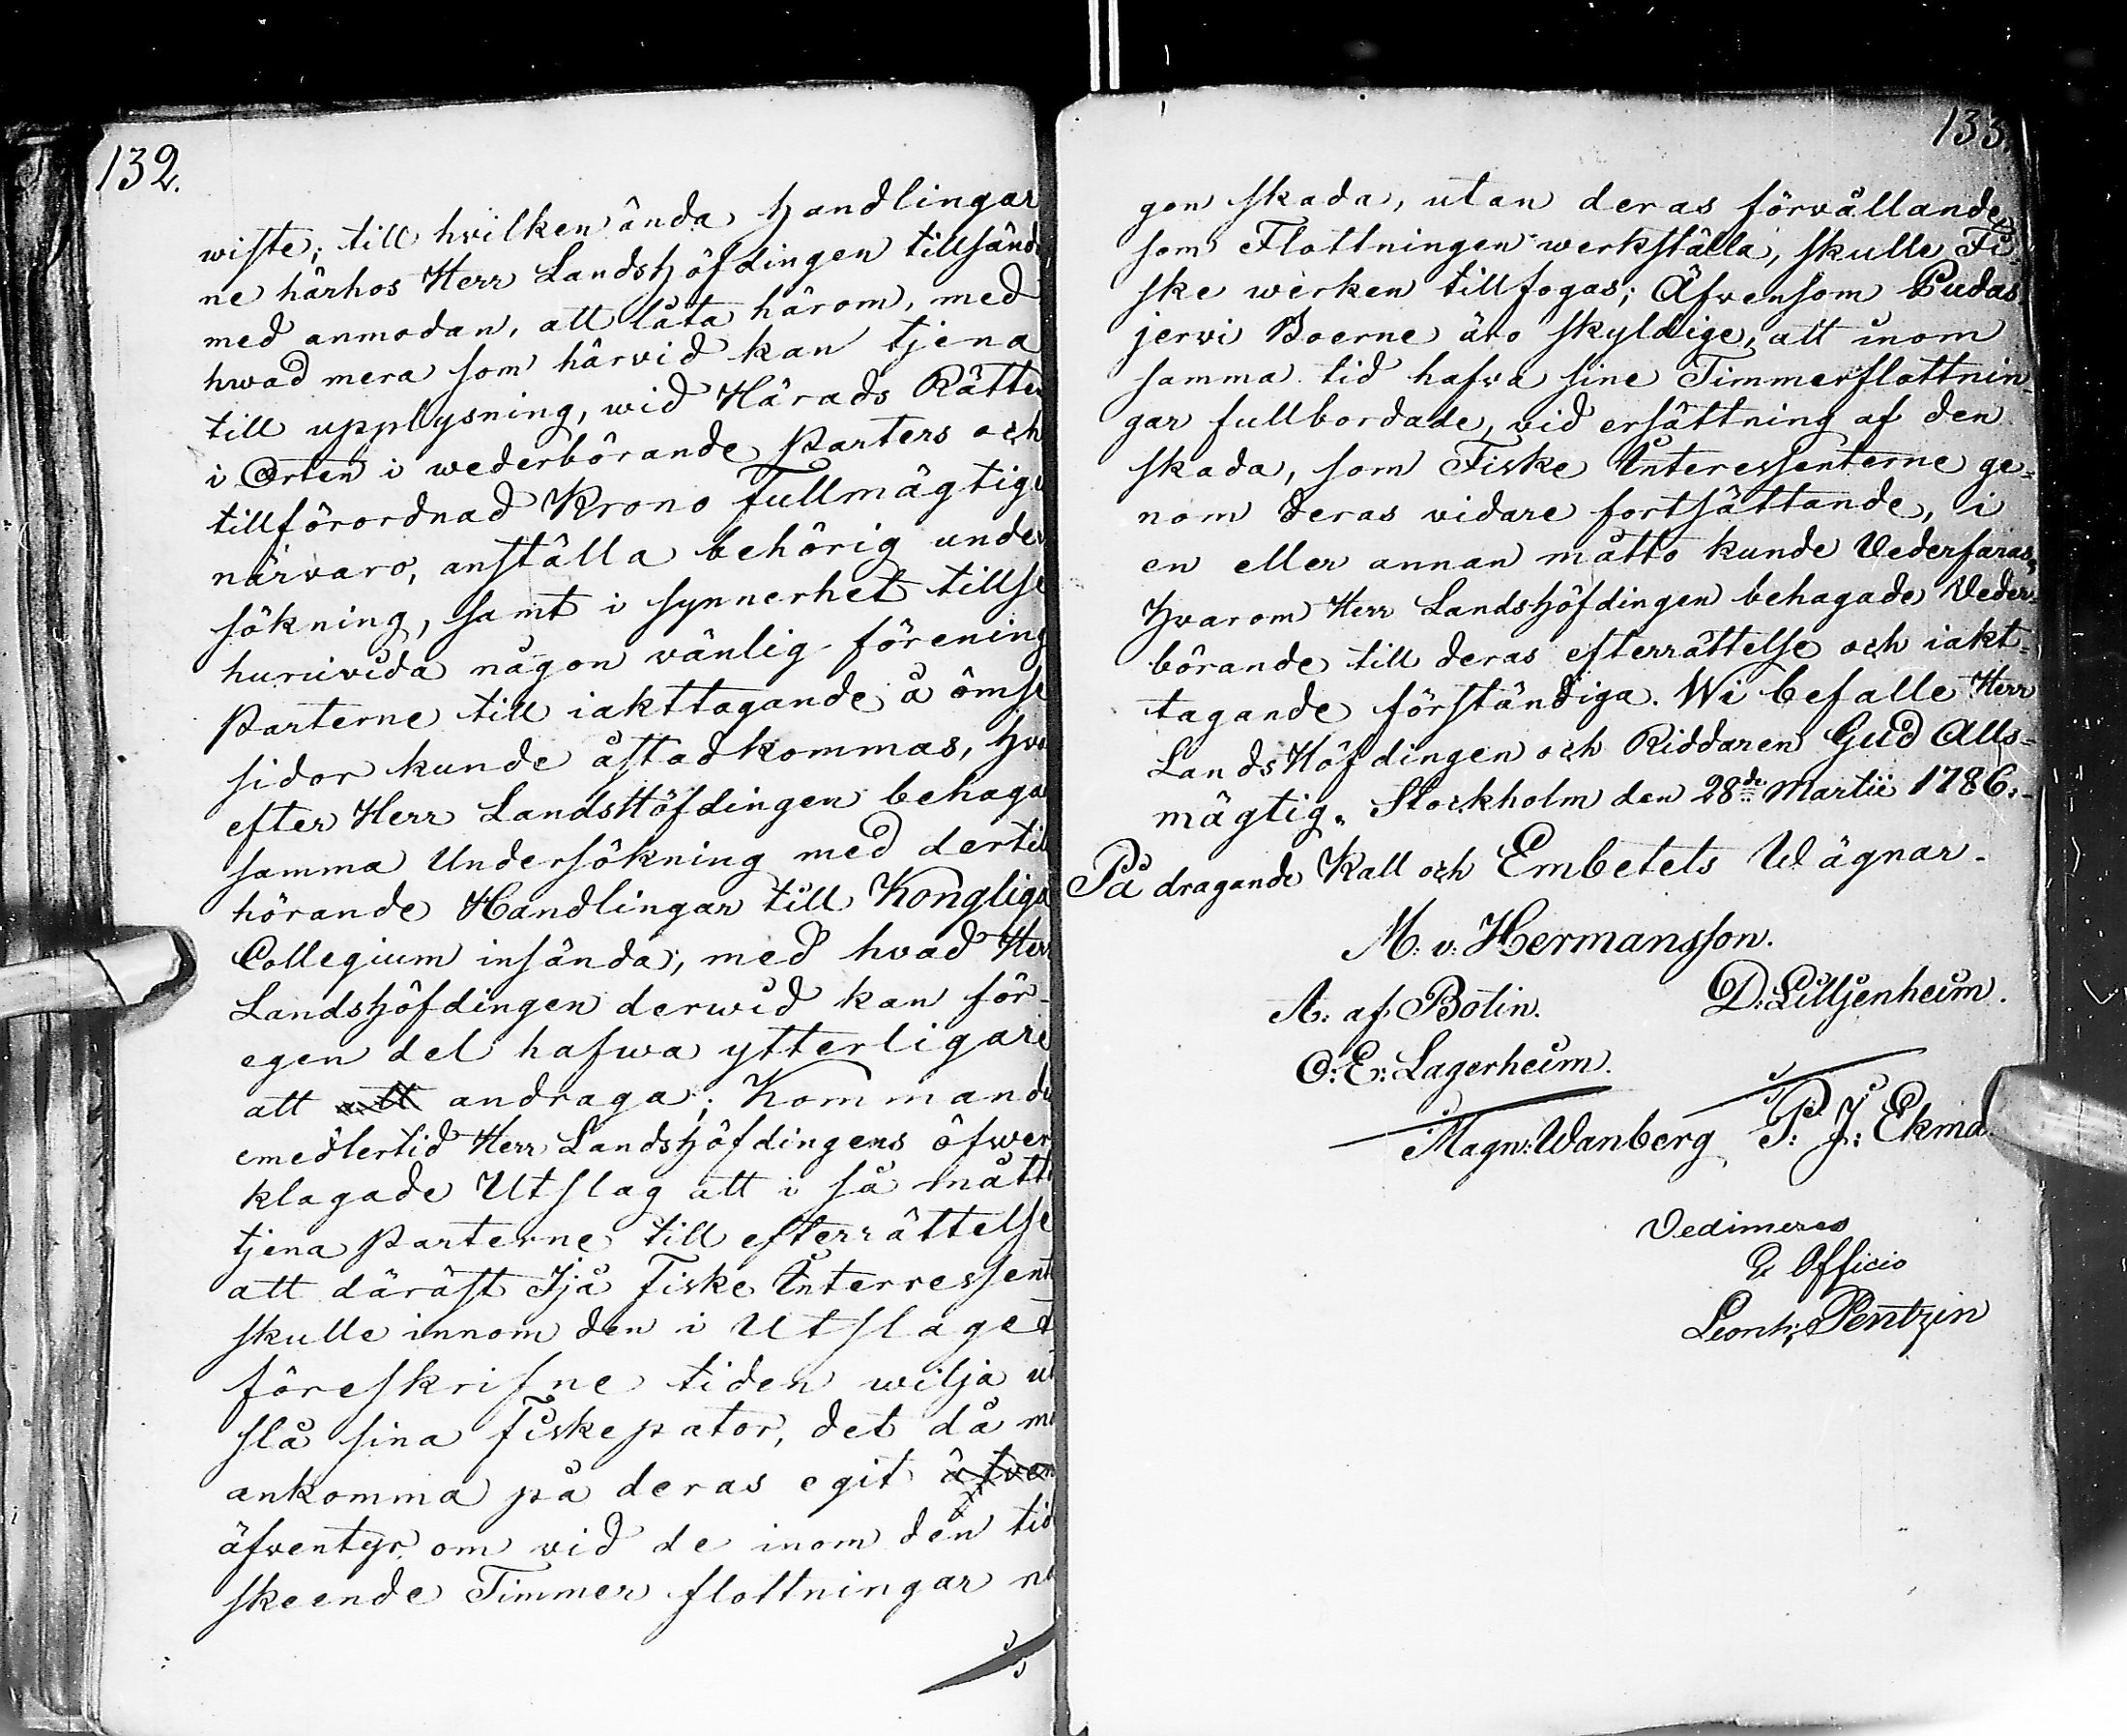 132.
wiste; till hvilken ända Handlingar
ne härhos Herr Landshöfdingen tillsänd
med anmodan, att låta härom, med
hwad mera som härvid kan tjena
till upplysning, wid Härads Rätten
i Orten i wederbörande Parters och
tillförordnad Krono Fullmägtige
närvaro, anställa behörig under
sökning, samt i synnerhet tillse
huruvida någon vänlig förening
Parterne till iakttagande å ömse
sidor kunde åstadkommas, Hvar
efter Herr LandsHöfdingen behaga
samma Undersökning med dertill
hörande Handlingar till Kongliga
Collegium insända, med hvad Herr
Landshöfdingen derwid kan för-
egen del hafwa ytterligare
att att andraga; Kommande
emedlertid Herr Landshöfdingens öfwer
klagade Utslag att i så måtte
tjena Parterne till efterrättelse
att däräst Ijå Fiske Interressent
skulle innom den i Utslaget
föreskrifne tiden wilja ut
slå sina Fiskepator, det då må
ankomma på deras egit äfven
äfventyr om vid de inom den tid
skeende Timmer flottningar nå
133.
gon skada, utan deras förvållande
som Flottningen werkställa, skulle Fi
ske werken tillfogas; Äfvensom Pudas
jervi Boerne äro skyldige, att inom
samma tid hafva sine Timmerflottnin-
gar fullbordade, vid ersättning af den
skada, som Fiske Interessenterne ge=
nom deras vidare fortsättande, i
en eller annan måtto kunde Vederfaras,
Hvarom Herr Landshöfdingen behagade Veder=
börande till deras efterrättelse och iakt=
tagande förständiga. Wi befalle Herr
LandsHöfdingen och Riddaren Gud Alls-
mägtig. Stockholm den 28de Martii 1786.-
På dragande Kall och Embetets Wägnar.
M: v: Hermansson.
A: af Botin. D: Lilljenheim.
O: E: Lagerheim.
Magn: Wanberg P: J: Ekma
Vedimeras
Ex Officio
Leonh; Pentzin